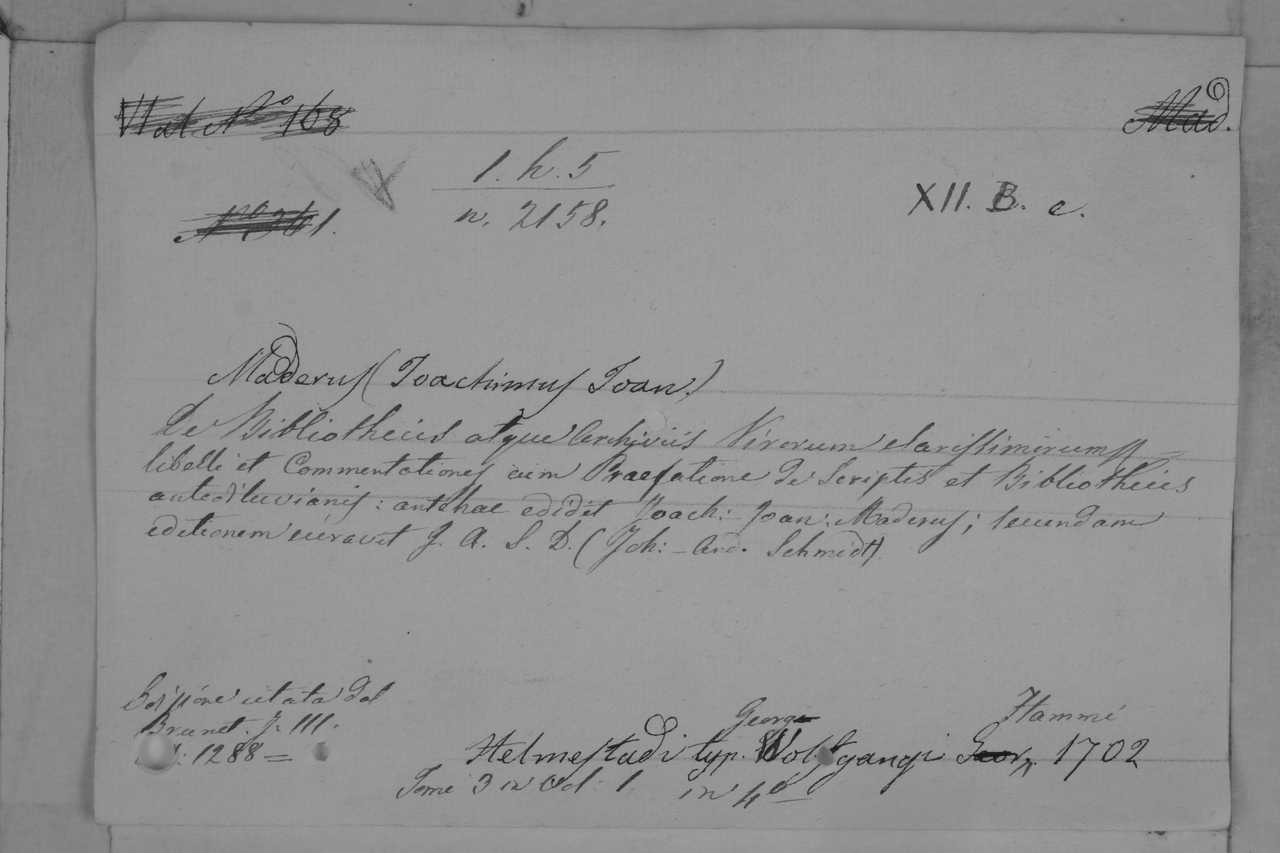 Nº 168
Mad.
1. h. 5
XII. B. c.
Nº 361.
n. 2158.
Maderus (Joachimus Joan.)
De Bibliothecis atque Archiviis Virorum clarissimorum
libelli et Commentationes cum Praefatione de Scriptis et Bibliothecis
antediluvianis: antehac edidit Joach: Joan: Maderus; secundam
editionem curavit J. A. S. D. (Joh: And. Schmidt)
Edizione citata dal
Brunet. T. III.
1288 =
George Hammi
Helmestadi typ. Wolfgangi Geor. 1702
Tomi 3 in Vol. 1. in 4º